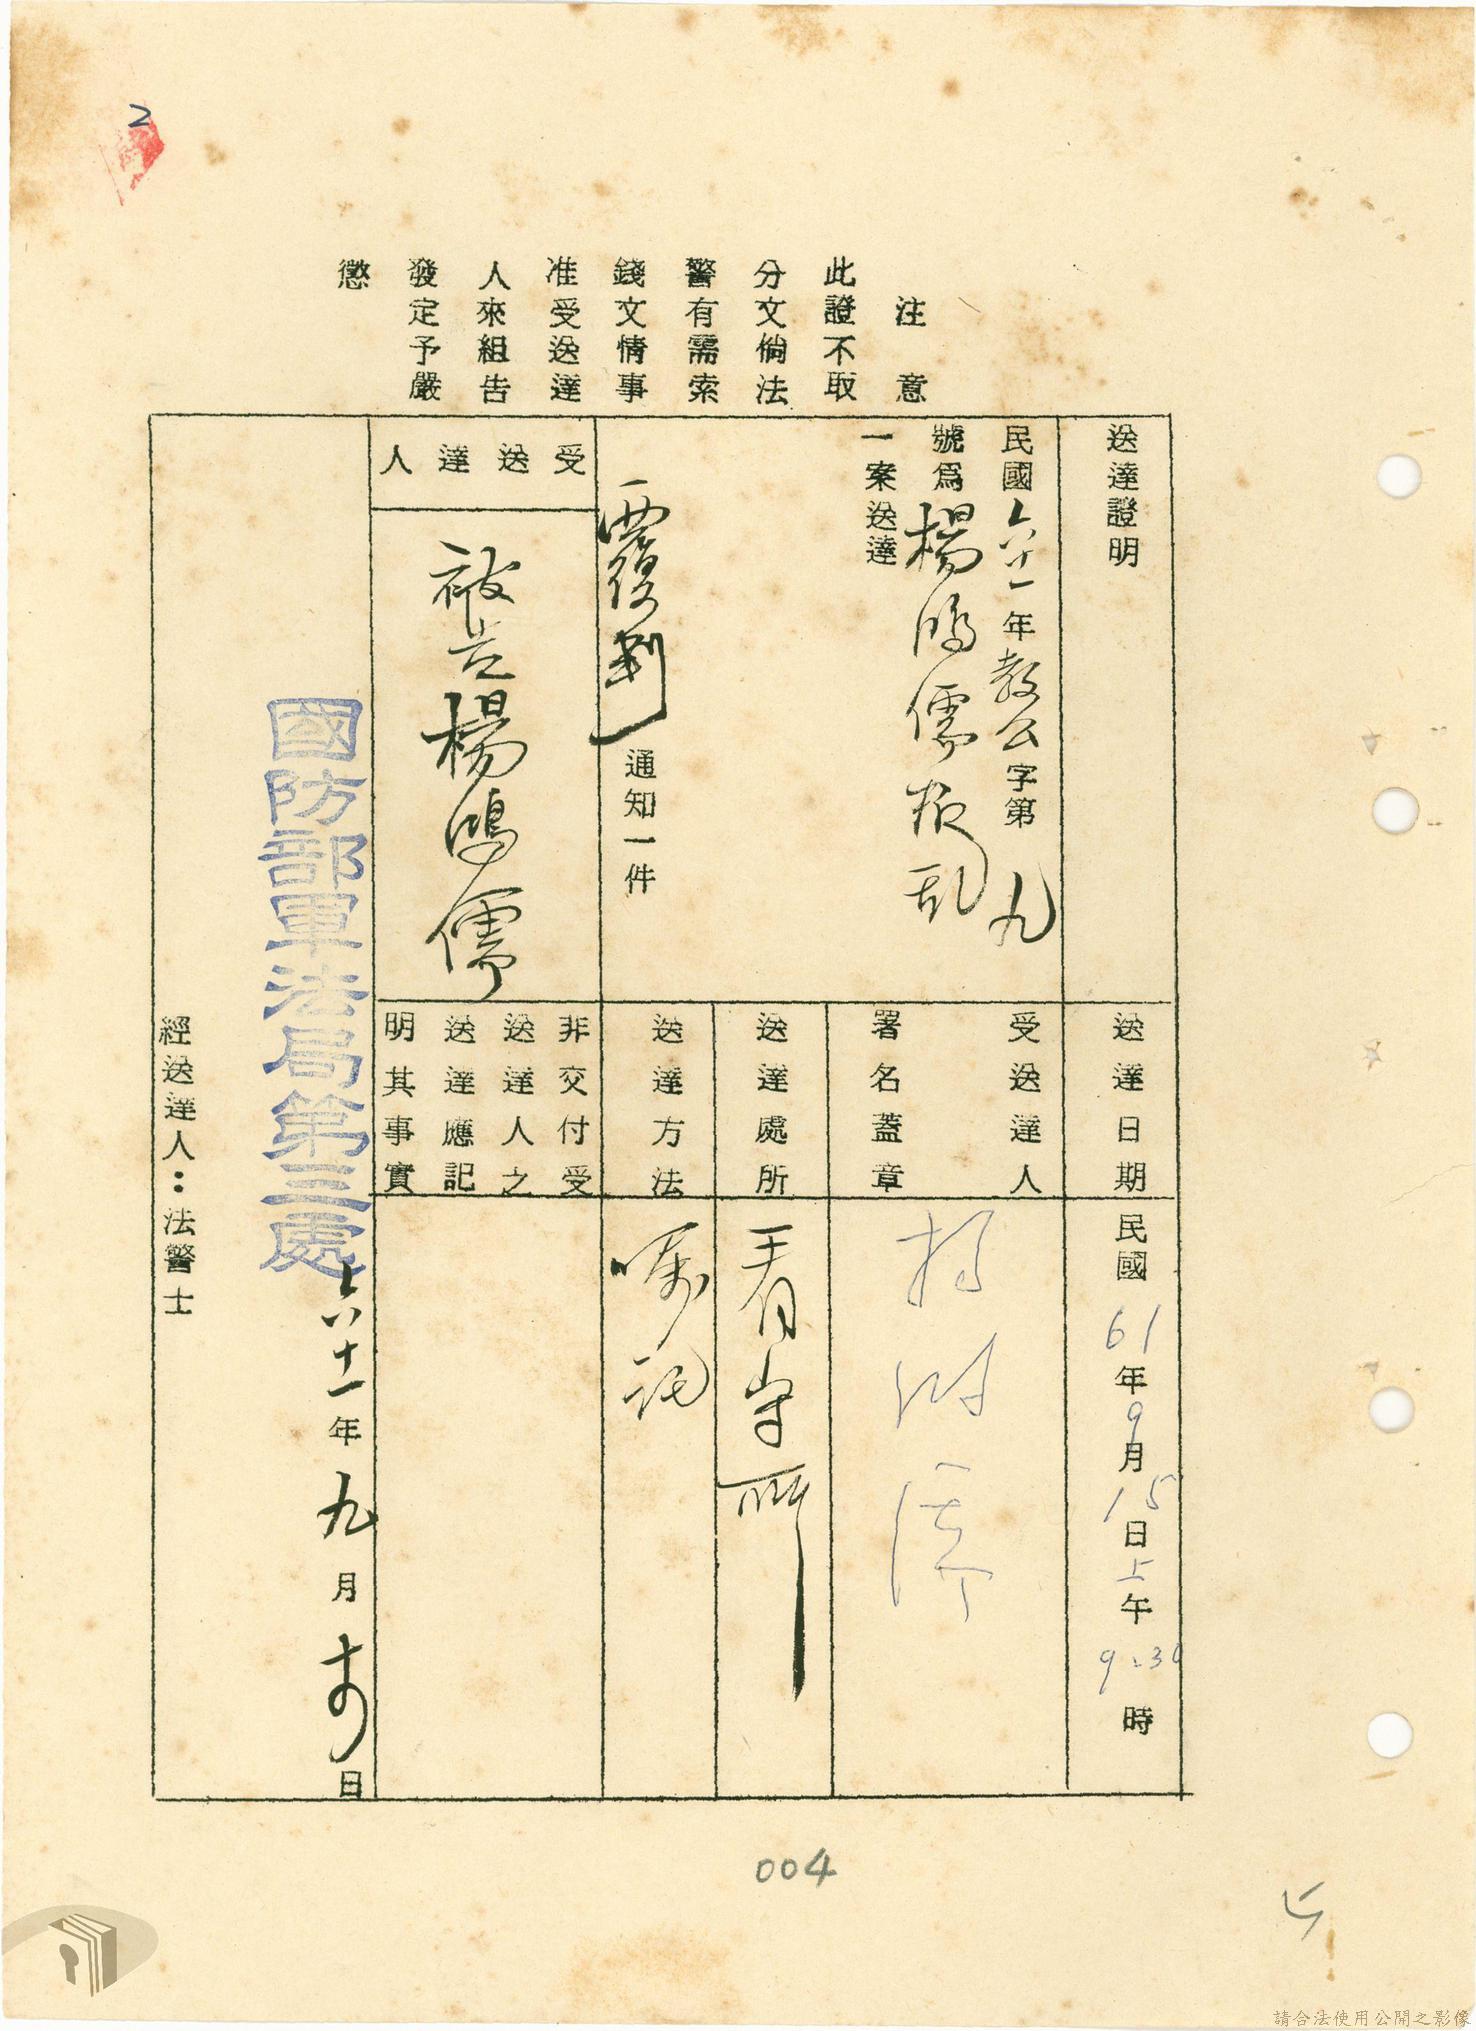 2
注意
此證不取
分文倘法
警有需索
錢文情事
准受送達
人來組告
發定予嚴
懲
送達證明
民國六十一年教公字第九
號為楊鴻儒叛乱
一案送達
覆判通知一件
受送達人
被告楊鴻儒
送達日期
民國61年9月15日上午9:30時
受送達人
署名蓋章
楊鴻儒
送達處所
看守所
送達方法
囑託
非交付受
送達人之
送達應記
明其事實
國防部軍法局第三處
六十一年九月十五日
經送達人：法警士
004
請合法使用公開之影像